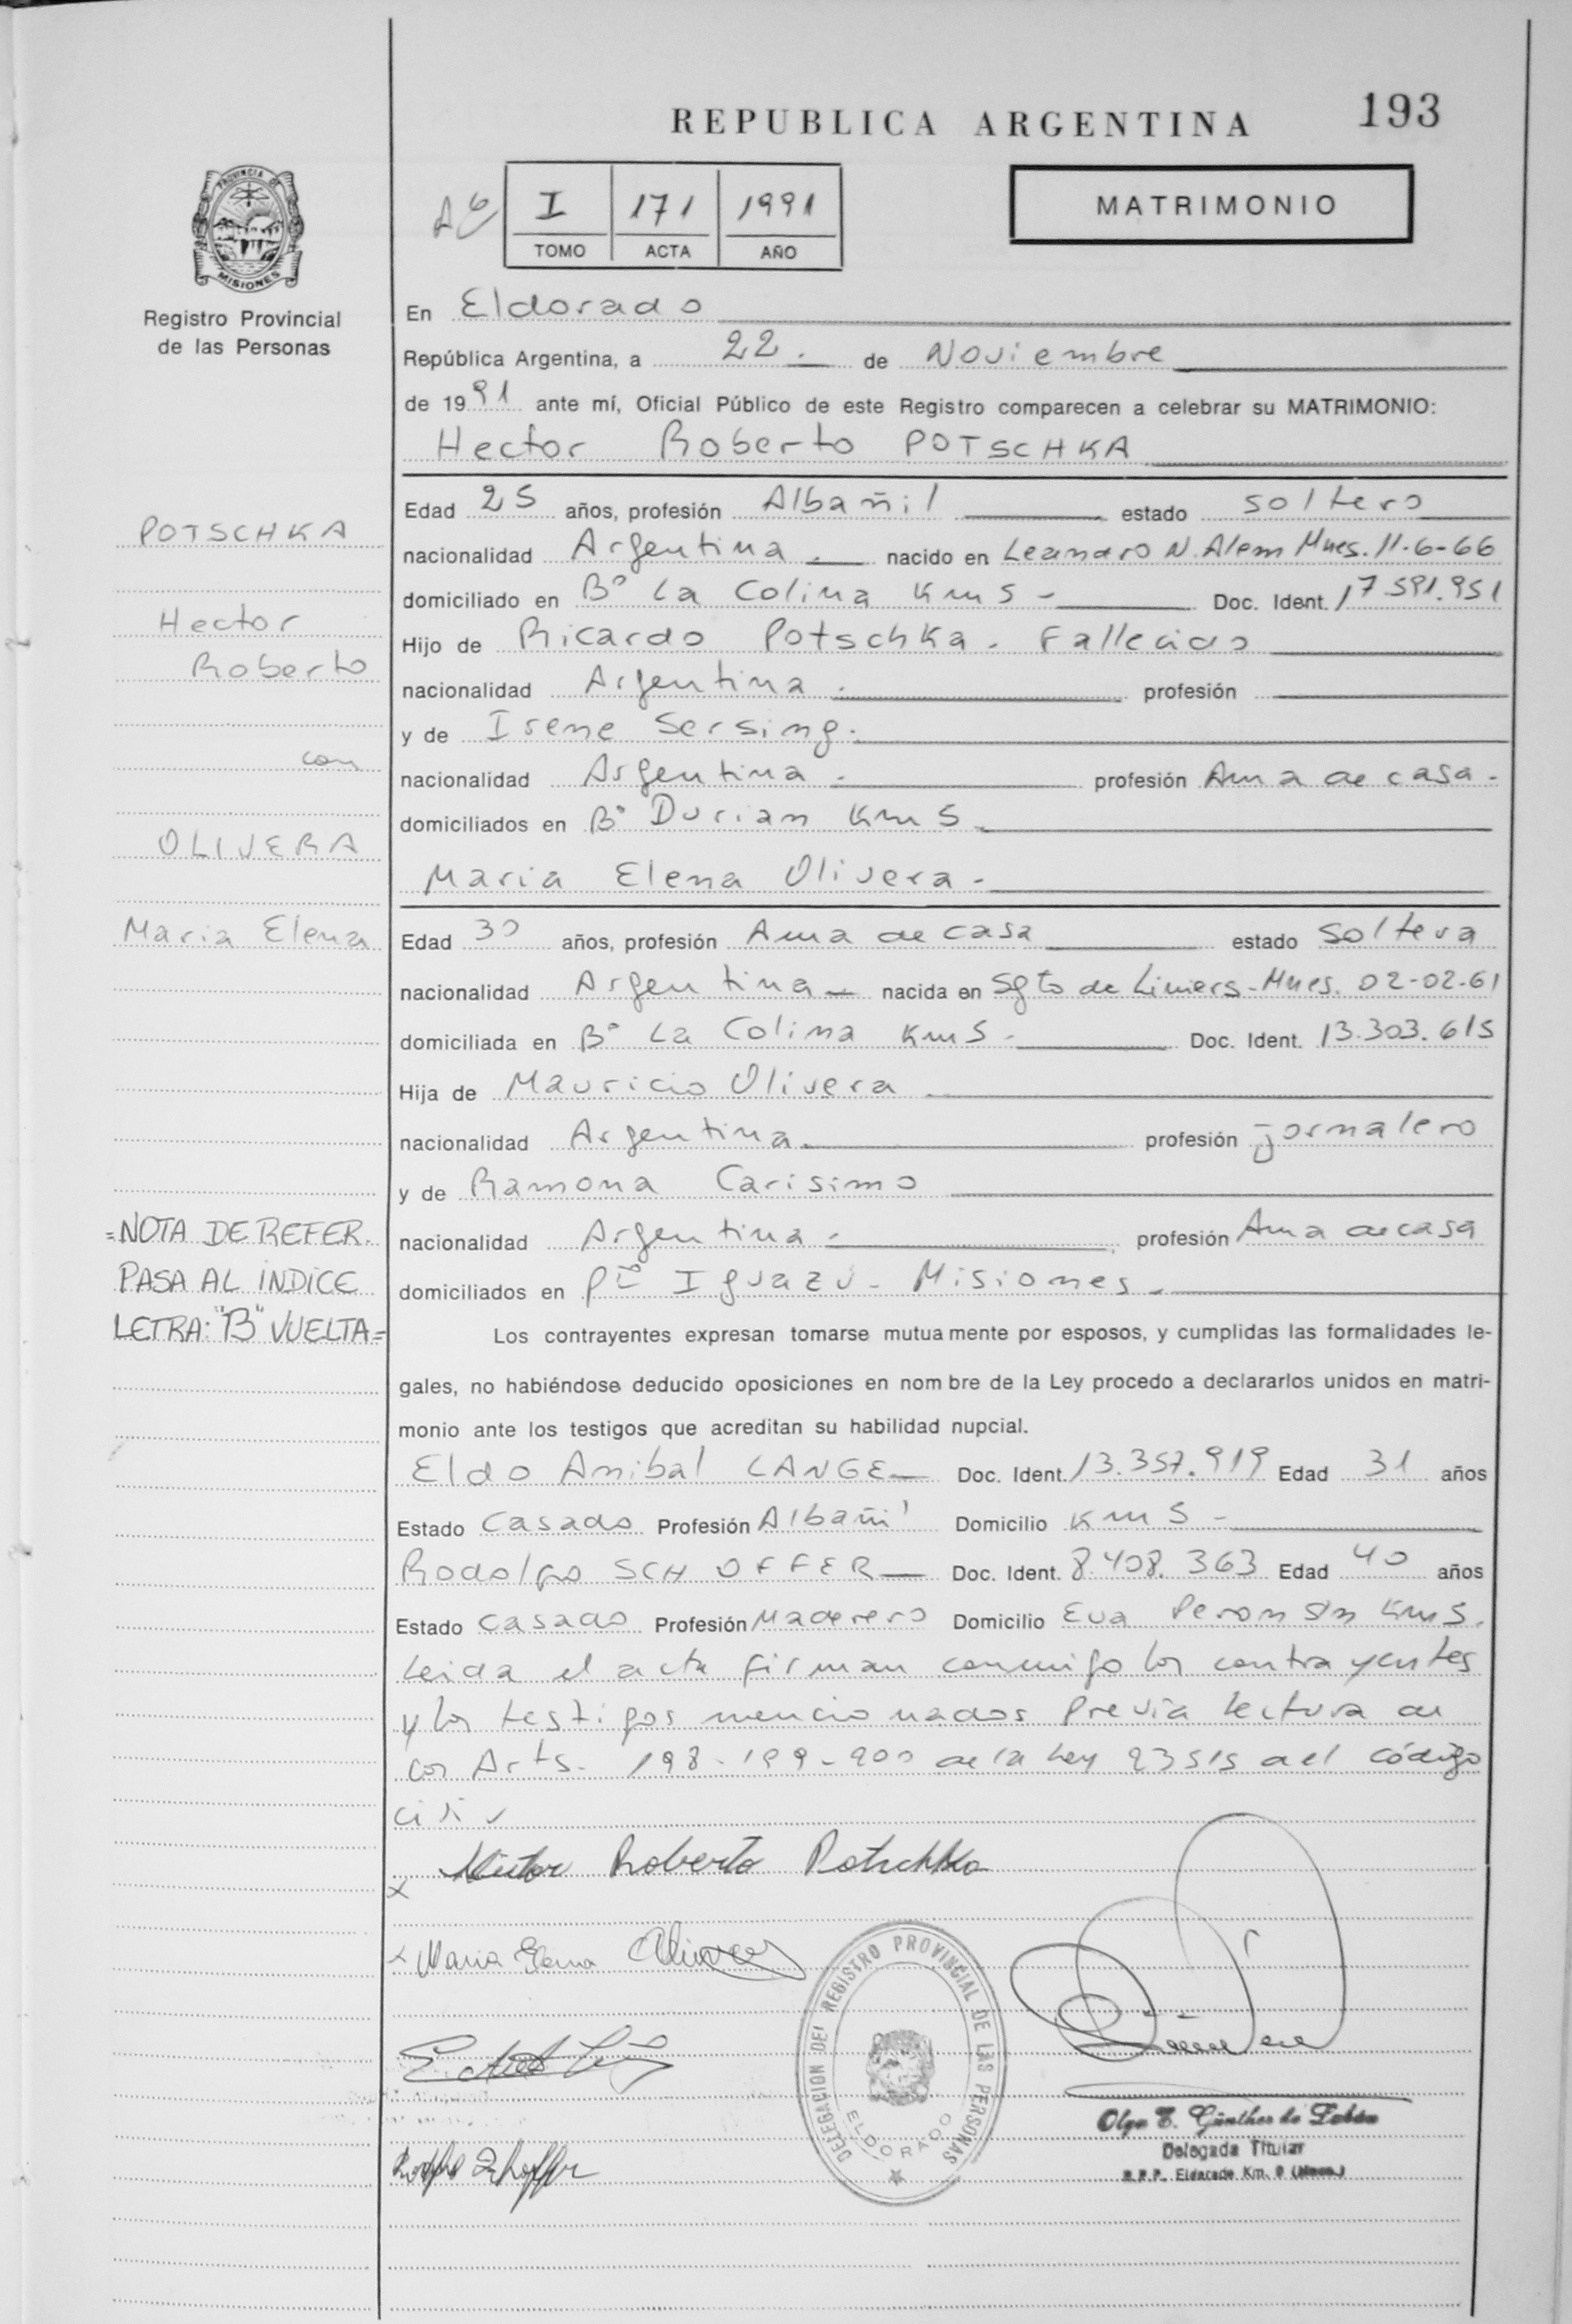 REPUBLICA ARGENTINA 193
PROVINCIA DE
MISIONES
Registro Provincial
de las Personas
I 171 1991
TOMO ACTA AÑO
MATRIMONIO
En Eldorado
República Argentina, a 22. de Noviembre
de 1991 ante mí, Oficial Público de este Registro comparecen a celebrar su MATRIMONIO:
Hector Roberto POTSCHKA
Edad 25 años, profesión Albañil estado soltero
POTSCHKA
nacionalidad Argentina nacido en Leandro N. Alem Mnes. 11-6-66
domiciliado en Bº La Colina Km 5 - Doc. Ident. 17.591.951
Hector
Hijo de Ricardo Potschka - Fallecido
Roberto
nacionalidad Argentina - profesión
y de Irene Sersing.
con
nacionalidad Argentina - profesión Ama de casa -
domiciliados en Bº Durian Km 5
OLIVERA
Maria Elena Olivera -
Maria Elena
Edad 30 años, profesión Ama de casa estado soltera
nacionalidad Argentina nacida en Sgto de Liniers - Mnes. 02-02-61
domiciliada en Bº La Colina Km 5 - Doc. Ident. 13.303.615
Hija de Mauricio Olivera
nacionalidad Argentina profesión jornalero
y de Ramona Carisimo
nacionalidad Argentina - profesión Ama de casa
domiciliados en Pto Iguazú - Misiones -
=NOTA DE REFER.
PASA AL INDICE
LETRA: "B" VUELTA=
Los contrayentes expresan tomarse mutuamente por esposos, y cumplidas las formalidades le-
gales, no habiéndose deducido oposiciones en nombre de la Ley procedo a declararlos unidos en matri-
monio ante los testigos que acreditan su habilidad nupcial.
Eldo Anibal LANGE Doc. Ident. 13.357.919 Edad 31 años
Estado Casado Profesión Albañil Domicilio Km 5 -
Rodolfo SCHOFFER Doc. Ident. 8.408.363 Edad 40 años
Estado Casado Profesión Maderero Domicilio Eva Peron S/n Km 5.
Leida el acta firman conmigo los contrayentes
y los testigos mencionados Previa lectura de
los Arts. 198-199-200 de la Ley 23515 del Código
Civil
x Hector Roberto Potschka
x Maria Elena Olivera
DELEGACION DEL REGISTRO PROVINCIAL DE LAS PERSONAS
ELDORADO
Olga E. Günther de
Delegada Titular
R.P.P. Eldorado Km. 9 (Mnes.)